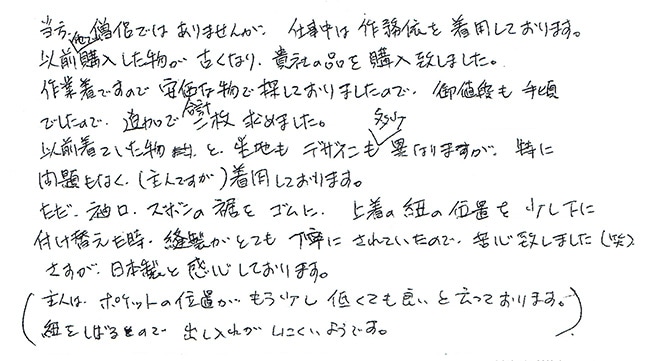 当方、他僧侶ではありませんが、仕事中は作務依を着用しております。
以前購入した物が古くなり、貴社の品を購入致しました。
作業着ですので安価な物で探しておりましたので、御値段も手頃
でしたので、追加で合計二枚求めました。
以前着ていた物と、生地もデザインも多少異なりますが、特に
問題もなく、(主人ですが)着用しております。
ただ、袖口、ズボンの裾をゴムに、上着の紐の位置を少し下に
付け替えた時、縫製がとても丁寧にされていたので、苦心致しました(笑)
さすが、日本製と感心しております。
(主人は、ポケットの位置が、もう少し低くても良いと云っております。
紐をしばるので、出し入れがしにくいようです。)